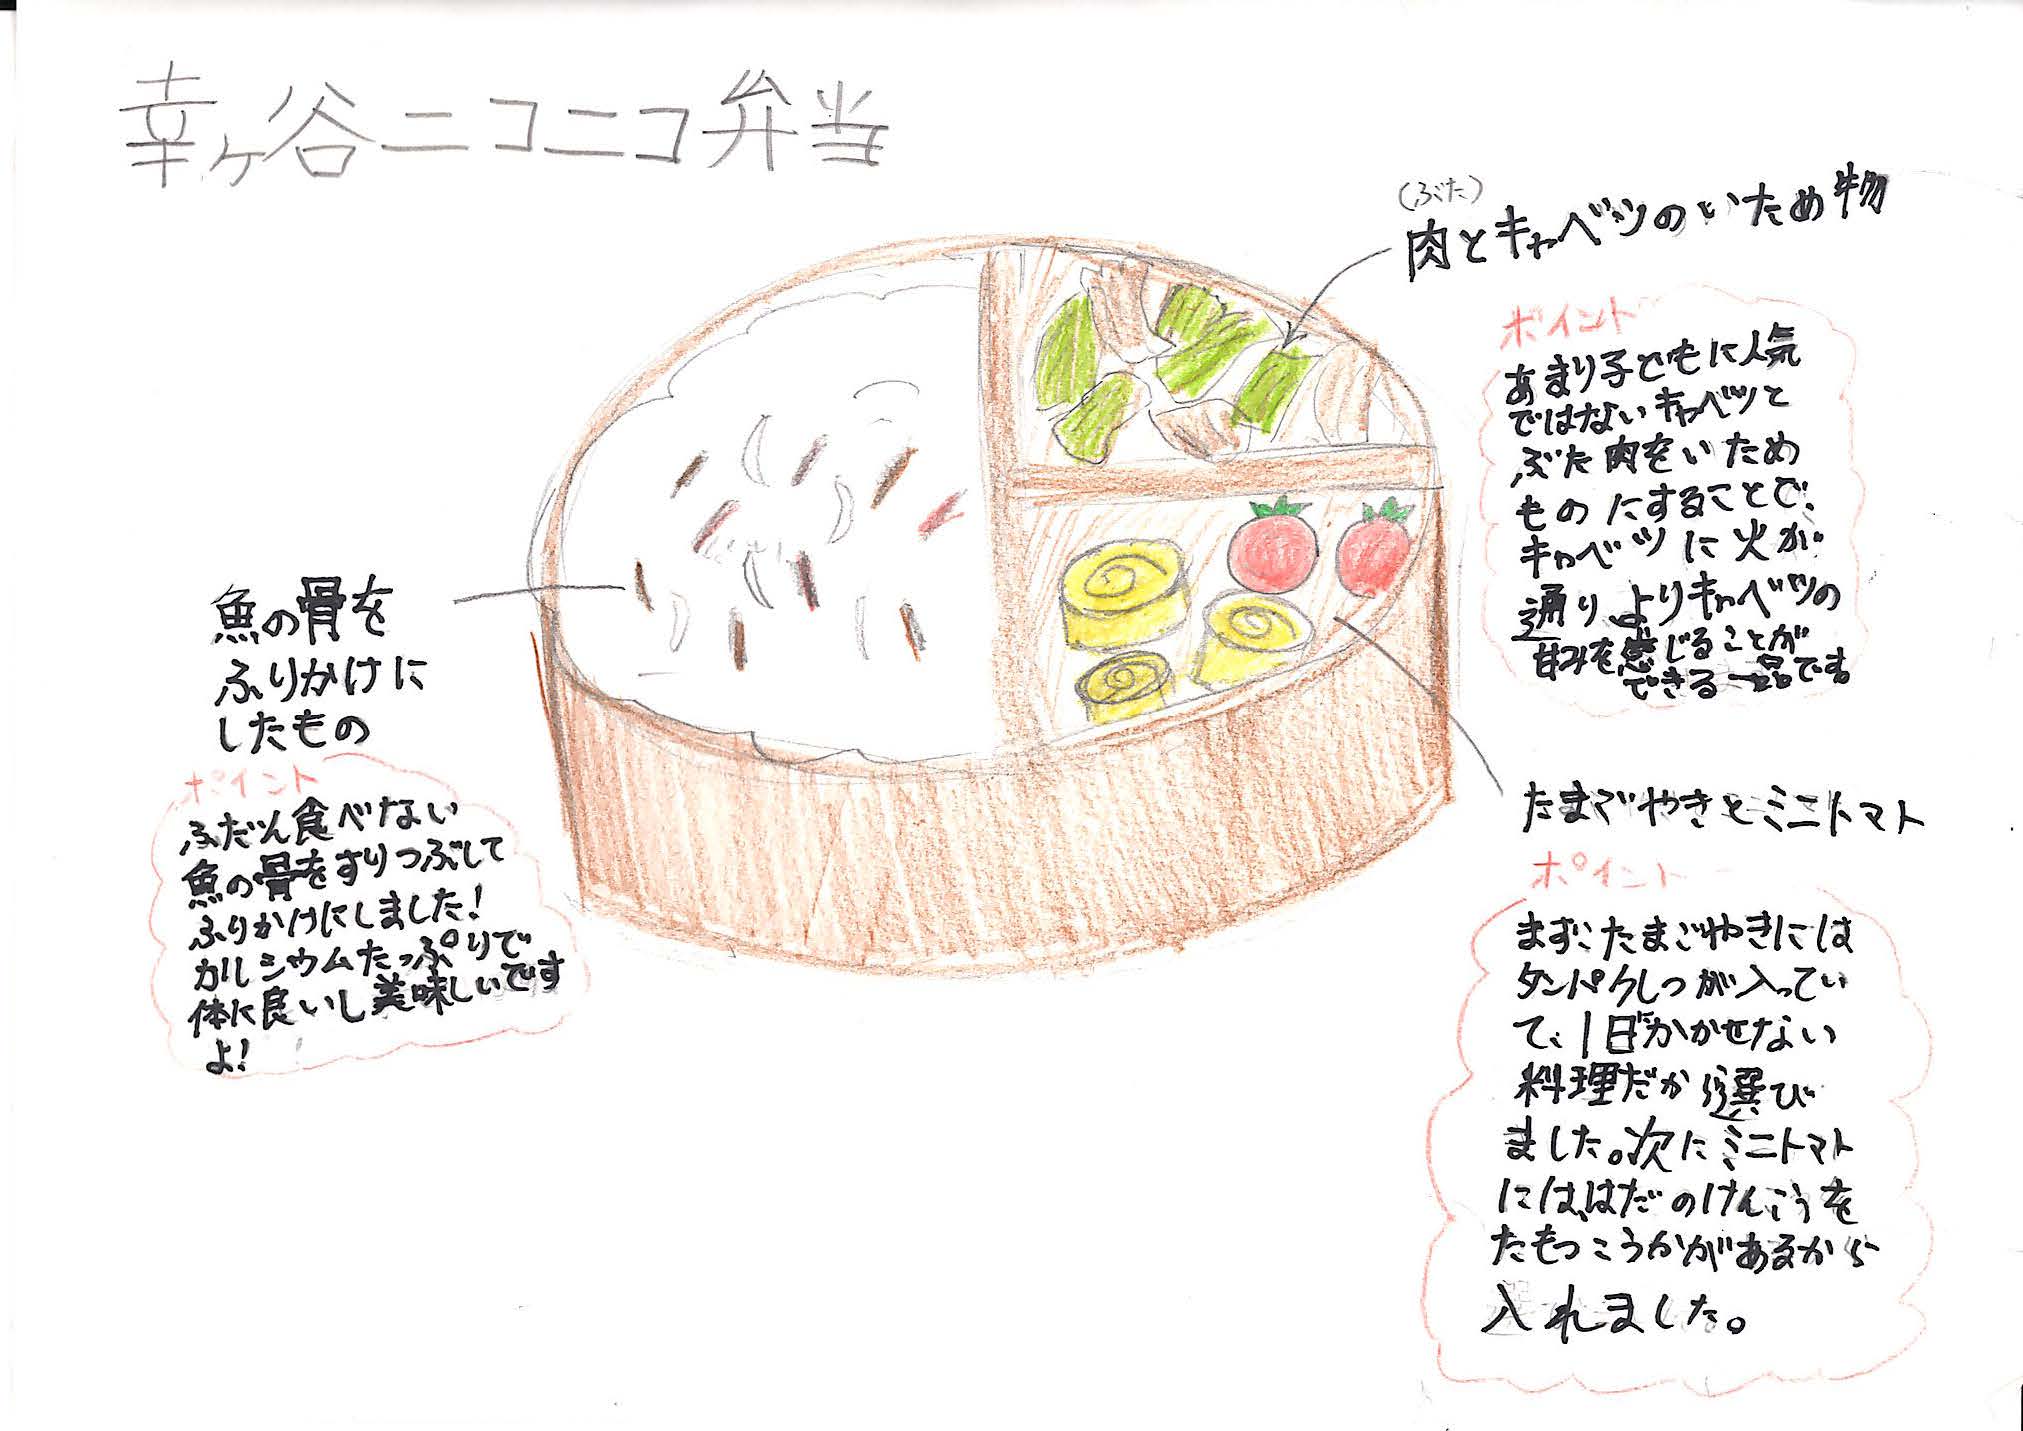 幸ヶ谷ニコニコ弁当
(ぶた)
肉とキャベツのいため物
ポイント
あまり子どもに人気
ではないキャベツと
ぶた肉をいため
ものにすることで、
キャベツに火が
通りよりキャベツの
甘みを感じることが
できる一品です
魚の骨を
ふりかけに
したもの
ポイント
ふだん食べない
魚の骨をすりつぶして
ふりかけにしました!
カルシウムたっぷりで
体に良いし美味しいです
よ!
たまごやきとミニトマト
ポイント
まず、たまごやきには
タンパクしつが入ってい
て、1日かかせない
料理だから選び
ました。次にミニトマト
には、はだのけんこうを
たもつこうかがあるから
入れました。